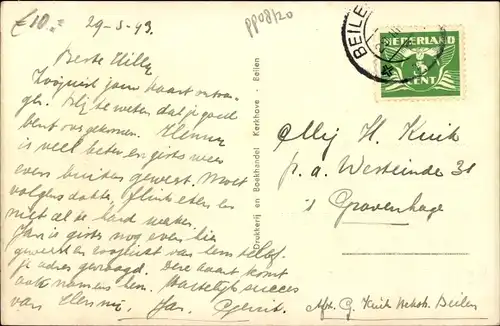 £10.=
29-3-43.
PP08/20
BEILEN
NEDERLAND
5
CENT
Beste Hilly
jouw kaart ontvan-
gen. Blij te weten dat je goed
bent overgekomen. Henny
is veel beter en gisteren weer
even buiten geweest. Moet
volgens dokter flink eten en
niet al te hard werken.
Jan is gister nog even hier
geweest en
je adres gevraagd. Deze kaart komt
ook namens hem. Hartelijk succes
van Henny, Jan, Gerrit.
Drukkerij en Boekhandel Kerkhove - Beilen
Mej H. Kuik
p.a. Westeinde 31
's Gravenhage
Afz. G. Kuik Beilen